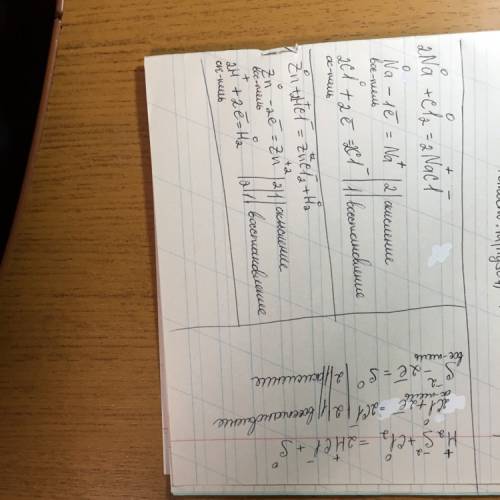 2Na⁰ + Cl₂⁰ = 2Na⁺Cl⁻
Na⁰ - 1e̅ = Na⁺ | 2 | окисление
вос-тель
2Cl⁰ + 2e̅ = 2Cl⁻ | 1 | восстановление
ок-тель
Zn⁰ + 2H⁺Cl⁻ = Zn⁺²Cl₂⁻ + H₂⁰
Zn⁰ - 2e̅ = Zn⁺² | 2 | 1 | окисление
вос-тель
2H⁺ + 2e̅ = H₂⁰ | 2 | 1 | восстановление
ок-тель
H₂⁺S⁻² + Cl₂⁰ = 2H⁺Cl⁻ + S⁰
2Cl⁰ + 2e̅ = 2Cl⁻ | 2 | 1 | восстановление
ок-тель
S⁻² - 2e̅ = S⁰ | 2 | 1 | окисление
вос-тель